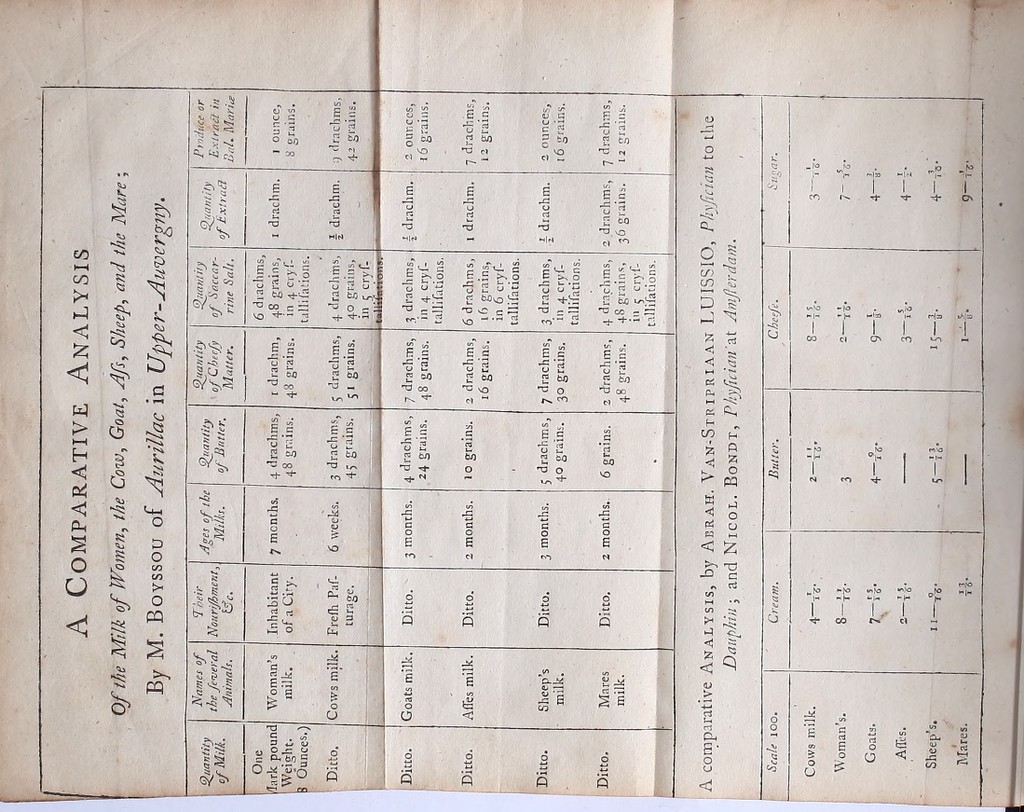 A COMPARATIVE ANALYSIS
Of the Milk of Women, the Cow, Goat, Aſs, Sheep, and the Mare;
By M. BOYSSOU of Aurillac in Upper-Auvergny.
Quantity of Milk. | Names of the ſeveral Animals. | Their Nouriſhment, &c. | Ages of the Milks. | Quantity of Butter. | Quantity of Cheeſy Matter. | Quantity of Saccarrine Salt. | Quantity of Extract | Produce or Extract in Bal. Mariæ
One Mark pound Weight. 8 Ounces.) | Woman's milk. | Inhabitant of a City. | 7 months. | 4 drachms, 48 grains. | 1 drachm, 48 grains. | 6 drachms, 48 grains, in 4 cryſtalliſations. | 1 drachm. | 1 ounce, 8 grains.
Ditto. | Cows milk. | Freſh Paſturage. | 6 weeks. | 3 drachms, 45 grains. | 5 drachms, 51 grains. | 4 drachms, 40 grains, in 5 cryſtalliſations. | ½ drachm. | 9 drachms, 42 grains.
Ditto. | Goats milk. | Ditto. | 3 months. | 4 drachms, 24 grains. | 7 drachms, 48 grains. | 3 drachms, in 4 cryſtalliſations. | ½ drachm. | 2 ounces, 16 grains.
Ditto. | Aſſes milk. | Ditto. | 2 months. | 10 grains. | 2 drachms, 16 grains. | 6 drachms, 16 grains, in 6 cryſtalliſations. | 1 drachm. | 7 drachms, 12 grains.
Ditto. | Sheep's milk. | Ditto. | 3 months. | 5 drachms, 40 grains. | 7 drachms, 30 grains. | 3 drachms, in 4 cryſtalliſations. | ½ drachm. | 2 ounces, 16 grains.
Ditto. | Mares milk. | Ditto. | 2 months. | 6 grains. | 2 drachms, 48 grains. | 4 drachms, 48 grains, in 5 cryſtalliſations. | 2 drachms, 36 grains. | 7 drachms, 12 grains.
A comparative ANALYSIS, by ABRAH. VAN-STRIPRIAAN LUISSIO, Phyſician to the
Dauphin; and NICOL. BONDT, Phyſician at Amſterdam.
Scale 100. | Cream. | Butter. | Cheeſe. | Sugar.
Cows milk. | 4— | 2—11/16. | 8—15/16. | 3—
Woman's. | 8—11/16. | 3 | 2—11/16. | 7—
Goats. | 7—15/16. | 4—9/16. | 9—1/8. | 4—3/8.
Aſſes. | 2—15/16. | — | 3—5/16. | 4—1/2.
Sheep's. | 11—9/16. | 5—13/16. | 15—3/8. | 4—3/16.
Mares. | 13/16. | — | 1—5/8. | 9—1/16.